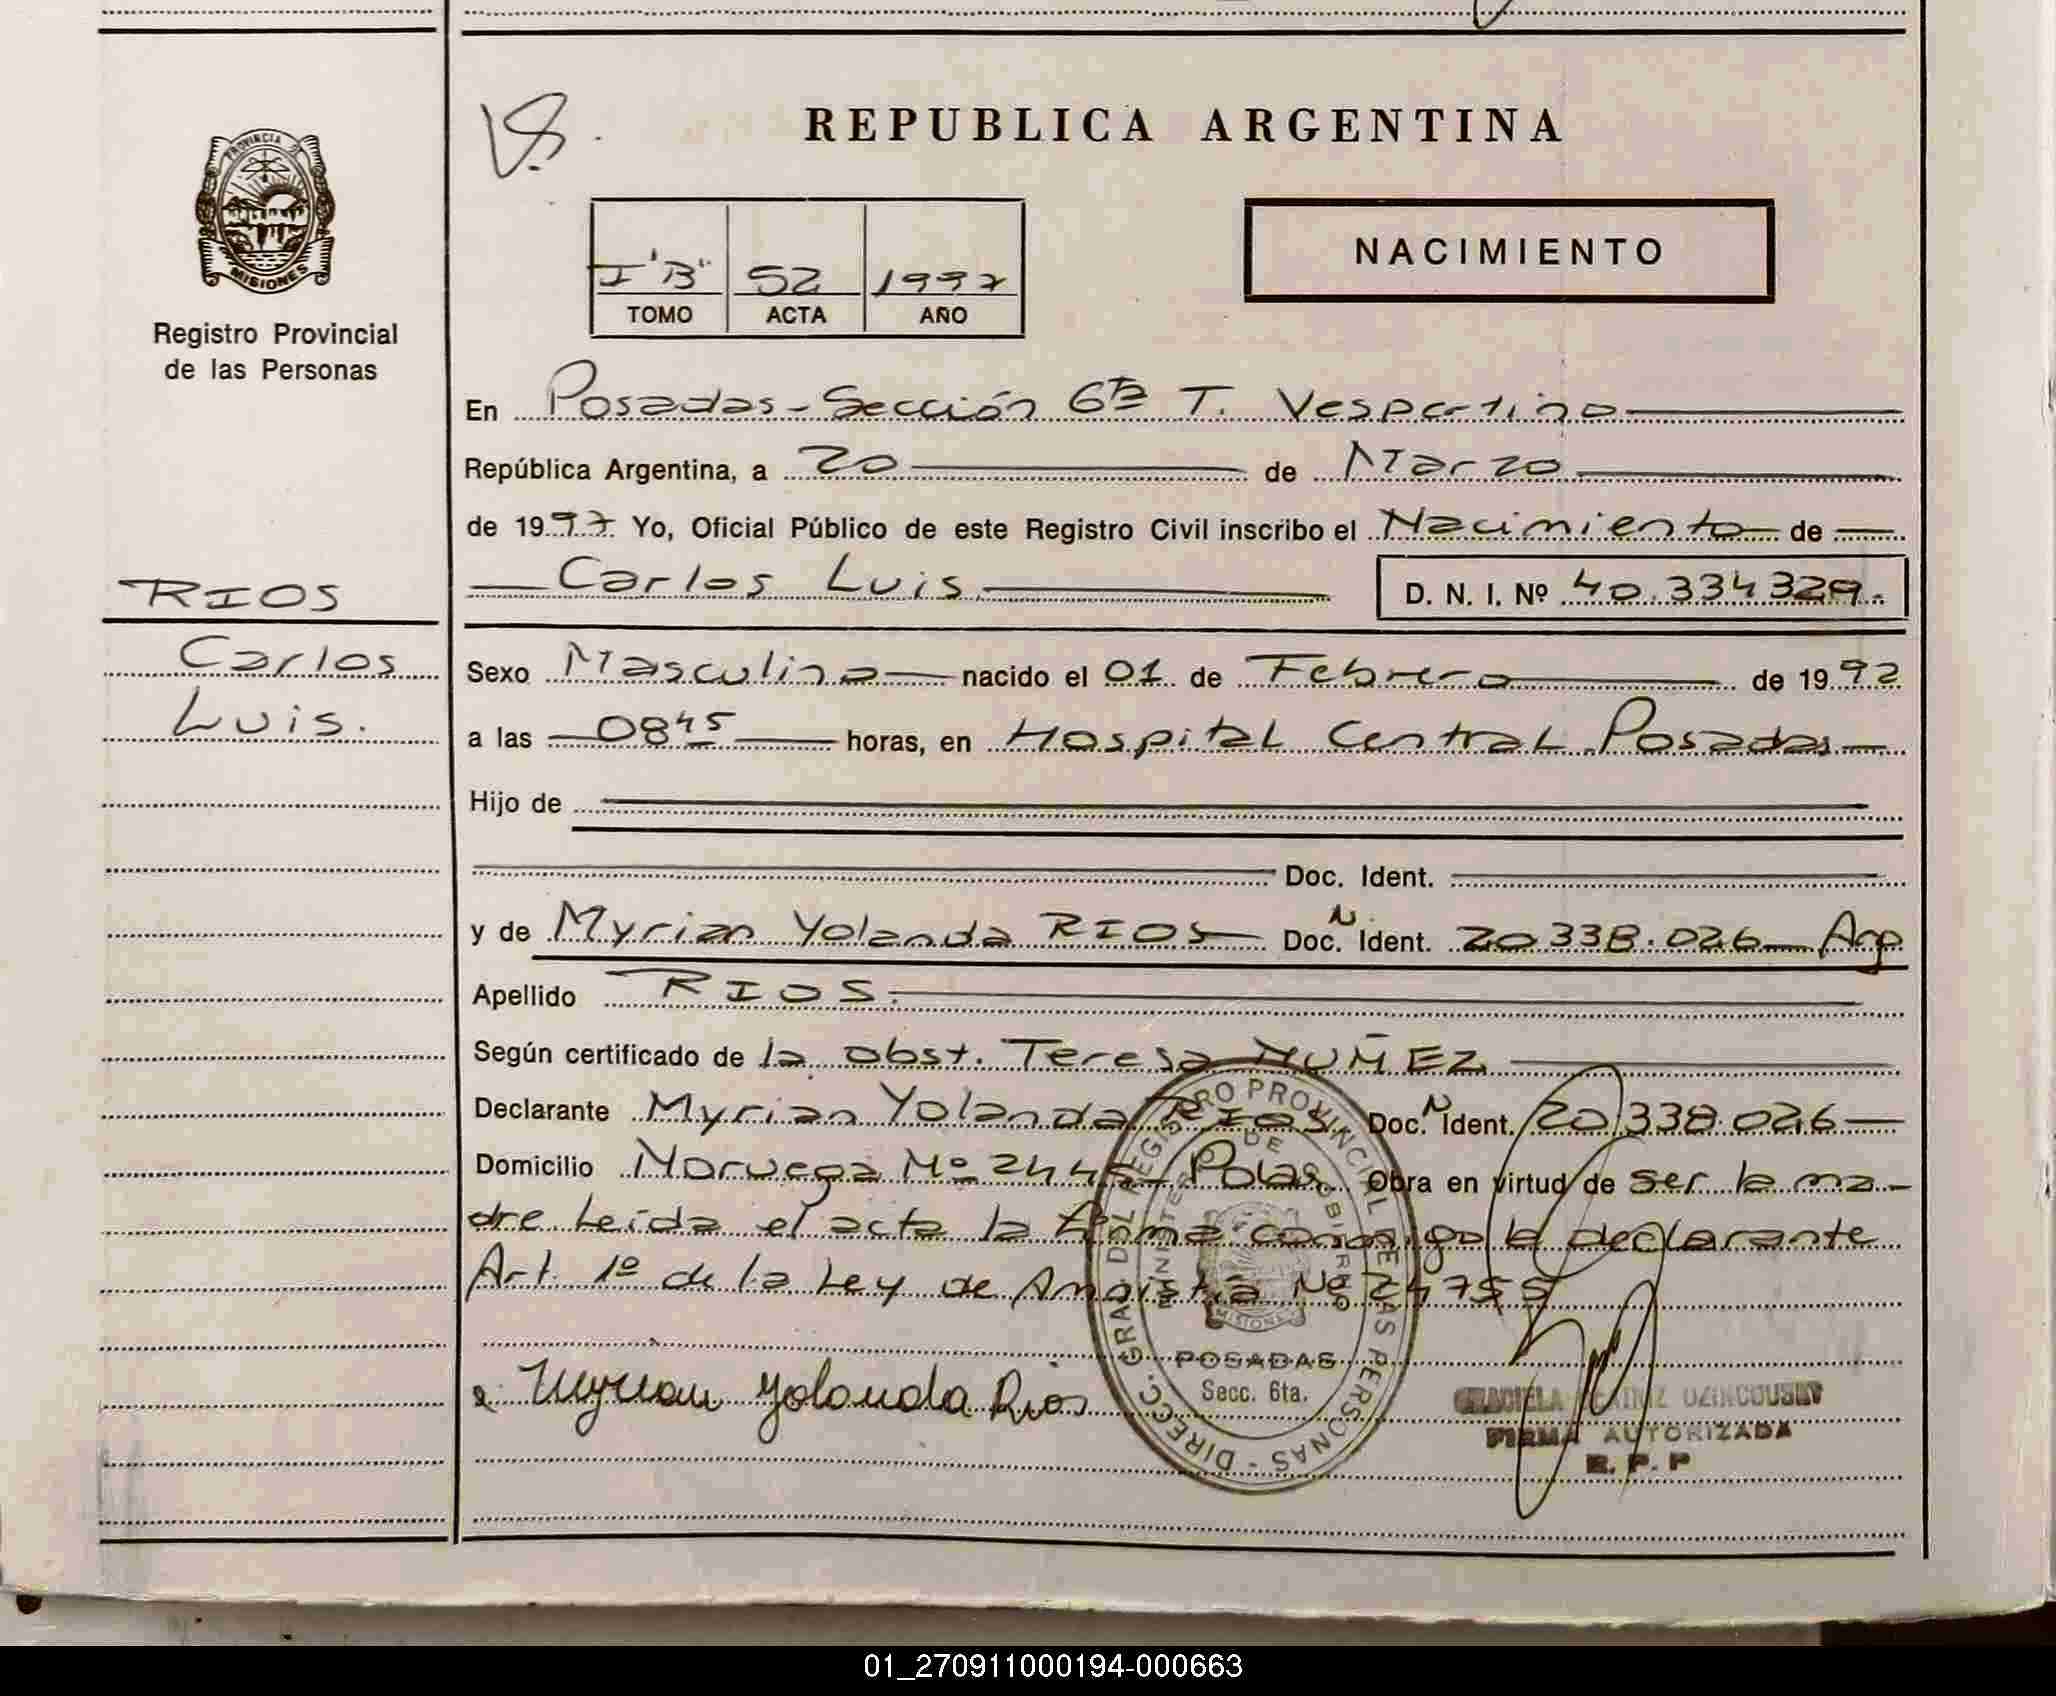 REPUBLICA ARGENTINA
PROVINCIA DE
MISIONES
Registro Provincial
de las Personas
I "B" 52 1997
TOMO ACTA AÑO
NACIMIENTO
En Posadas - Sección 6ta T. Vespertino
República Argentina, a 20 de Marzo
de 1997 Yo, Oficial Público de este Registro Civil inscribo el Nacimiento de
RIOS
Carlos Luis D. N. I. Nº 40.334329.
Carlos
Luis.
Sexo Masculino nacido el 01 de Febrero de 1992
a las 0845 horas, en Hospital Central Posadas
Hijo de
Doc. Ident.
y de Myrian Yolanda RIOS Doc. N. Ident. 20338.026 Arg
Apellido RIOS.
Según certificado de la obst. Teresa NUÑEZ
Declarante Myrian Yolanda RIOS Doc. N Ident. 20338.026
Domicilio Noruega Nº 2445 Pdas. Obra en virtud de ser la ma-
dre Leída el acta la firma conmigo la declarante
Art. 1º de la Ley de Amnistía Nº 24755
DIRECC. GRAL DL REGISTRO PROVINCIAL DE LAS PERSONAS -
MINISTERIO DE GOBIERNO
MISIONES
POSADAS
Secc. 6ta.
Myrian Yolanda Rios
GRACIELA
FIRMA AUTORIZADA
R. P. P
01_270911000194-000663